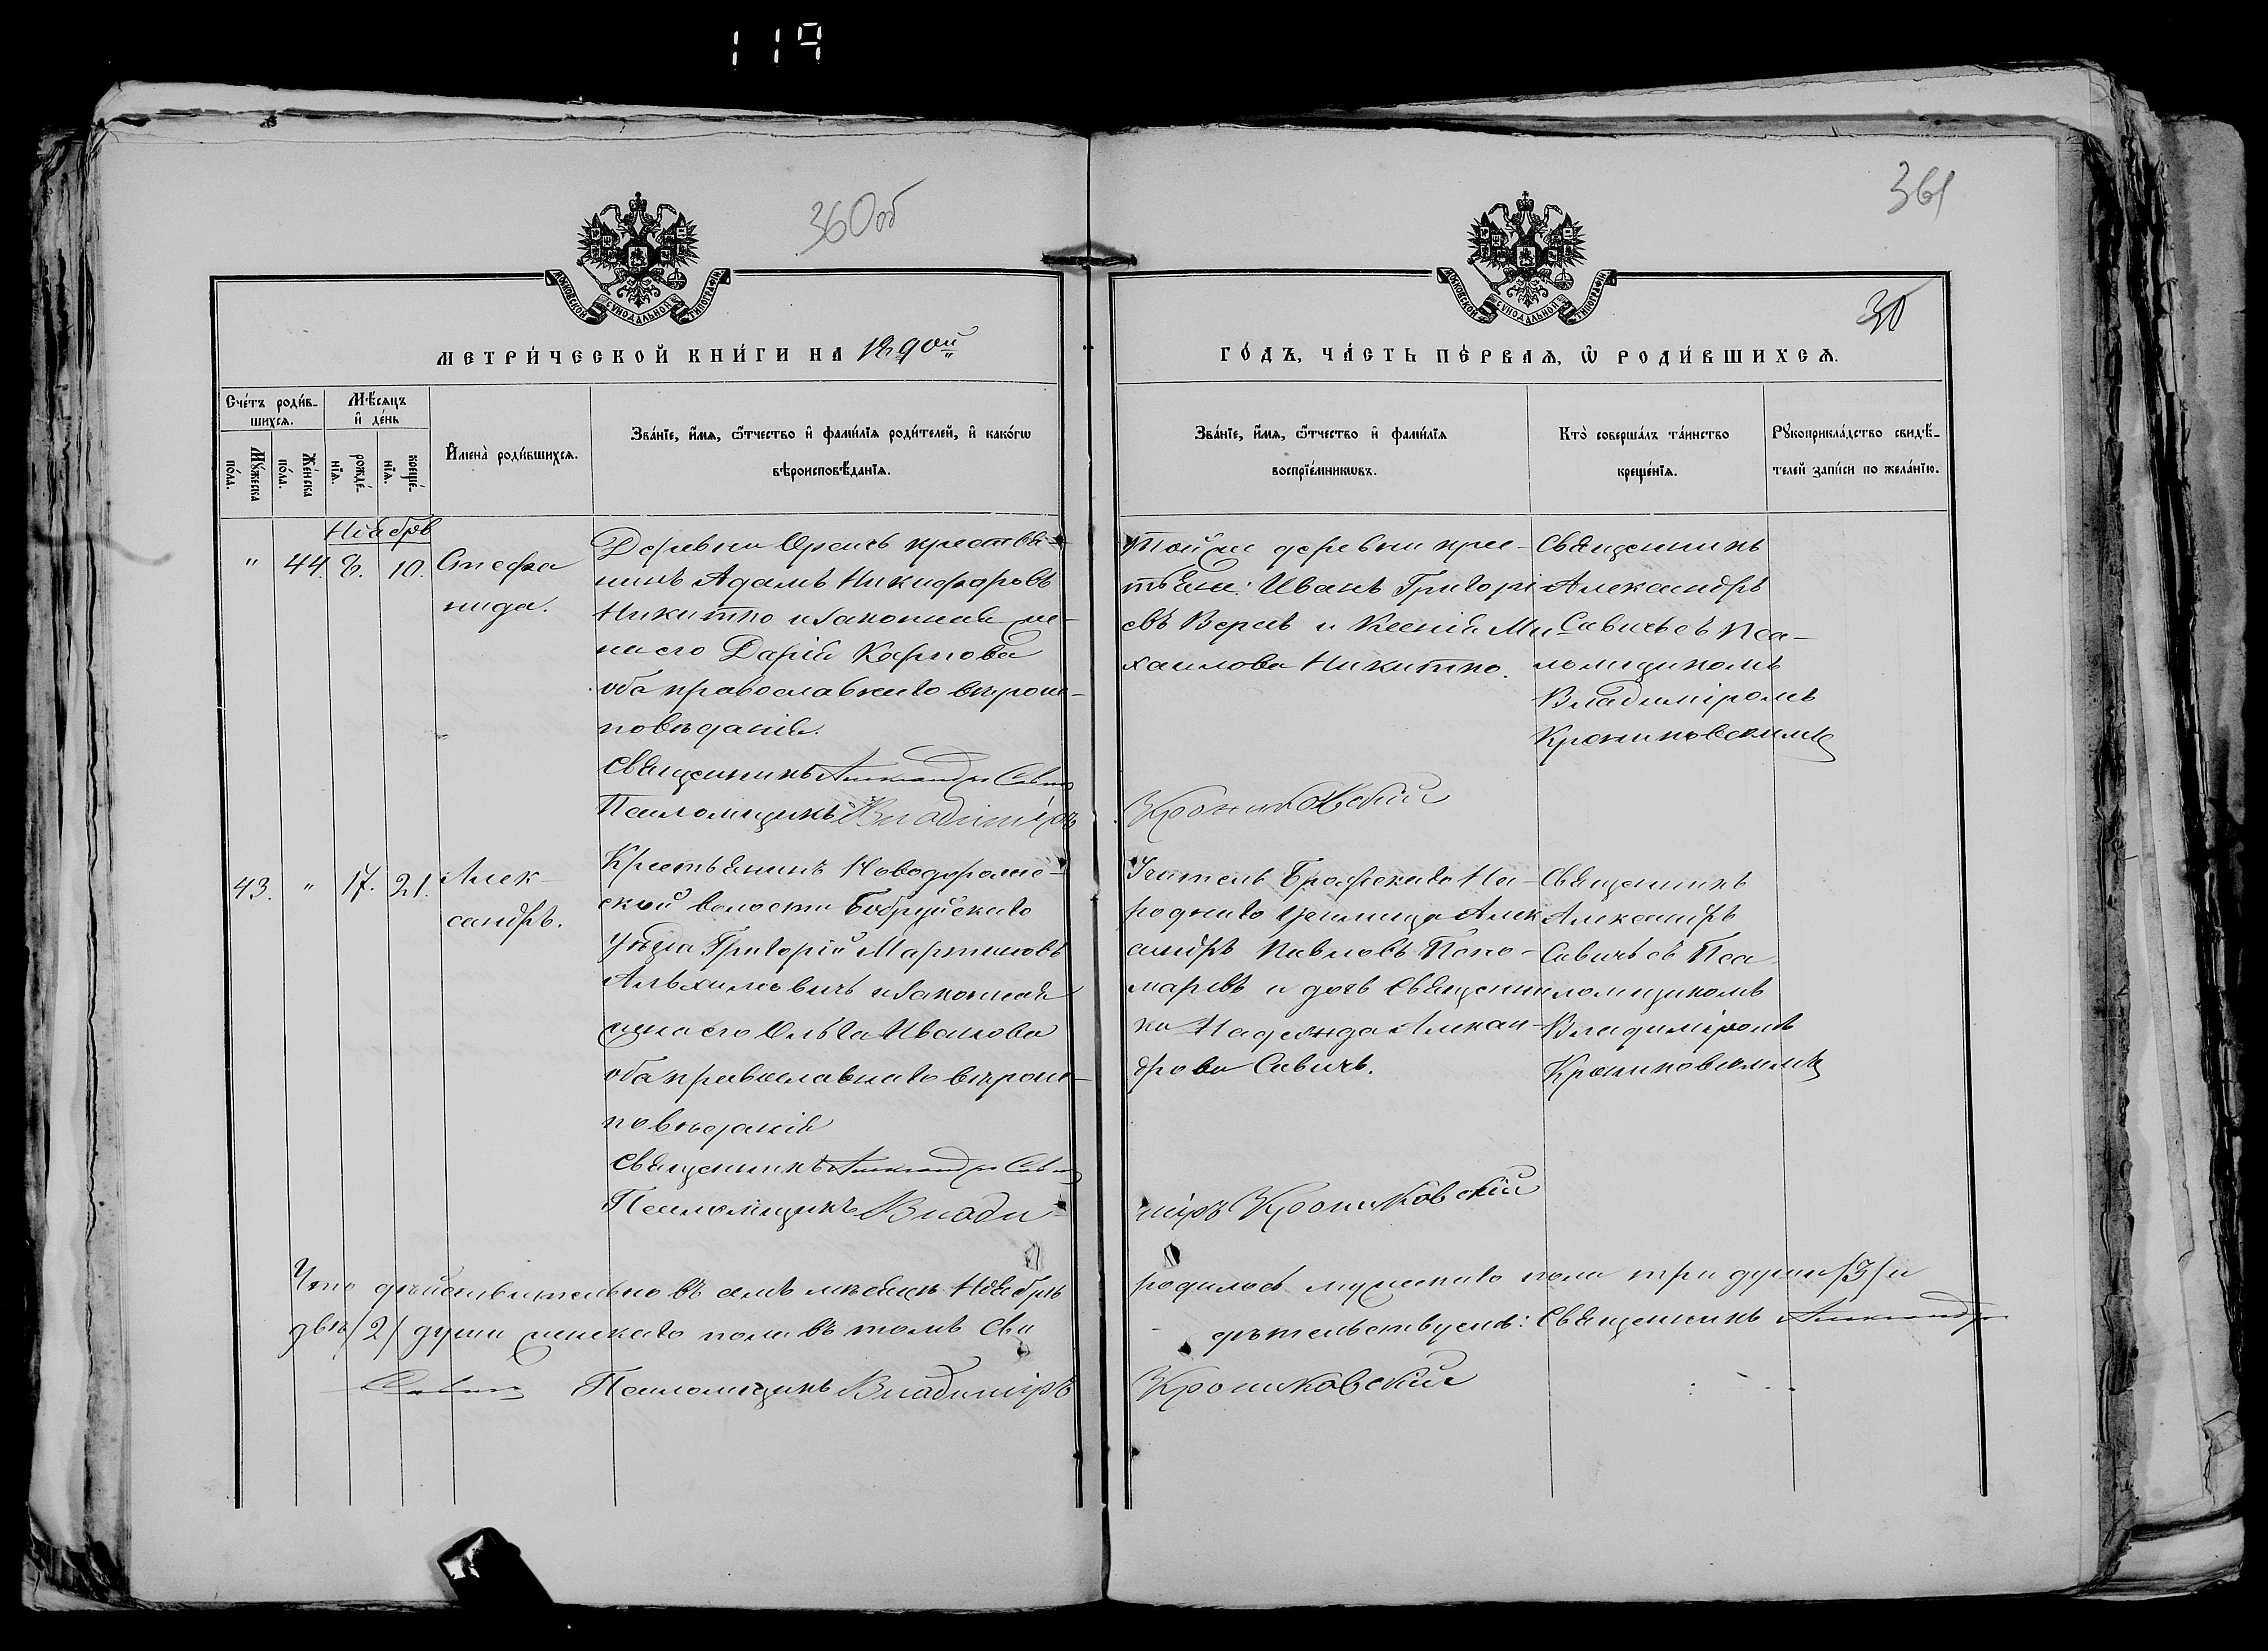 119
360об
361
30
МОСКОВСКОЙ СѴНОДАЛЬНОЙ ТИПОГРАФІИ
МОСКОВСКОЙ СѴНОДАЛЬНОЙ ТИПОГРАФІИ
МЕТРИ́ЧЕСКОЙ КНИ́ГИ НА 1890ый
ГО́ДЪ, ЧА́СТЬ ПЕ́РВАѦ, Ѡ҆ РОДИ́ВШИХСѦ.
Сче́тъ роди́в-
шихсѧ.
Мꙋ́жеска по́ла.
Же́нска по́ла.
Мѣ́сѧцъ
и҆ де́нь
рожде́-
нїѧ.
креще́-
нїѧ.
И҆мена̀ роди́вшихсѧ.
Зва́нїе, и҆́мѧ, ѻ҆́тчество и҆ фами́лїѧ роди́телей, и҆ како́гѡ
вѣроисповѣ́данїѧ.
Зва́нїе, и҆́мѧ, ѻ҆́тчество и҆ фами́лїѧ
воспрїе́мникѡвъ.
Кто̀ соверша́лъ та́инство
креще́нїѧ.
Рꙋкоприкла́дство свидѣ́-
телей за́писи по жела́нїю.
Ноябрь
" 44. 8. 10. Стефа
нида.
Деревни Оресь крестья-
нинъ Адамъ Никифоровъ
Никитко и законная же-
на его Дарія Карпова
оба православнаго вѣроис-
повѣданія.
Священникъ Александръ Савичъ
Псаломщикъ Владиміръ
Той же деревни крес-
тьяне: Иванъ Григорі
евъ Верев и Ксенія Ми
хаилова Никитко.
Крониковскій
Священникъ
Александръ
Савичъ съ Пса-
ломщикомъ
Владиміромъ
Крониковскимъ
43. " 17. 21. Алек-
сандръ.
Крестьянинъ Новодорож-
ской волости Бобруйскаго
уѣзда Григорій Мартиновъ
Альхимовичъ и законная
жена его Ольга Иванова
оба православнаго вѣроис-
повѣданія
Священникъ Александръ Савичъ
Псаломщикъ Влади-
Учитель На-
роднаго училища Алек
сандръ Павловъ Поно-
маревъ и дочь Священни
ка Надежда Алексан-
дрова Савичъ.
міръ Крониковскій
Священникъ
Александръ
Савичъ съ Пса
ломщикомъ
Владиміромъ
Крониковскимъ
Что дѣйствительно въ семъ мѣсяцѣ Ноябрѣ родилось мужескаго пола три души /3/ и
двѣ /2/ души женскаго пола въ томъ сви дѣтельствуемъ: Священникъ Александръ
Савичъ Псаломщикъ Владиміръ Крониковскій